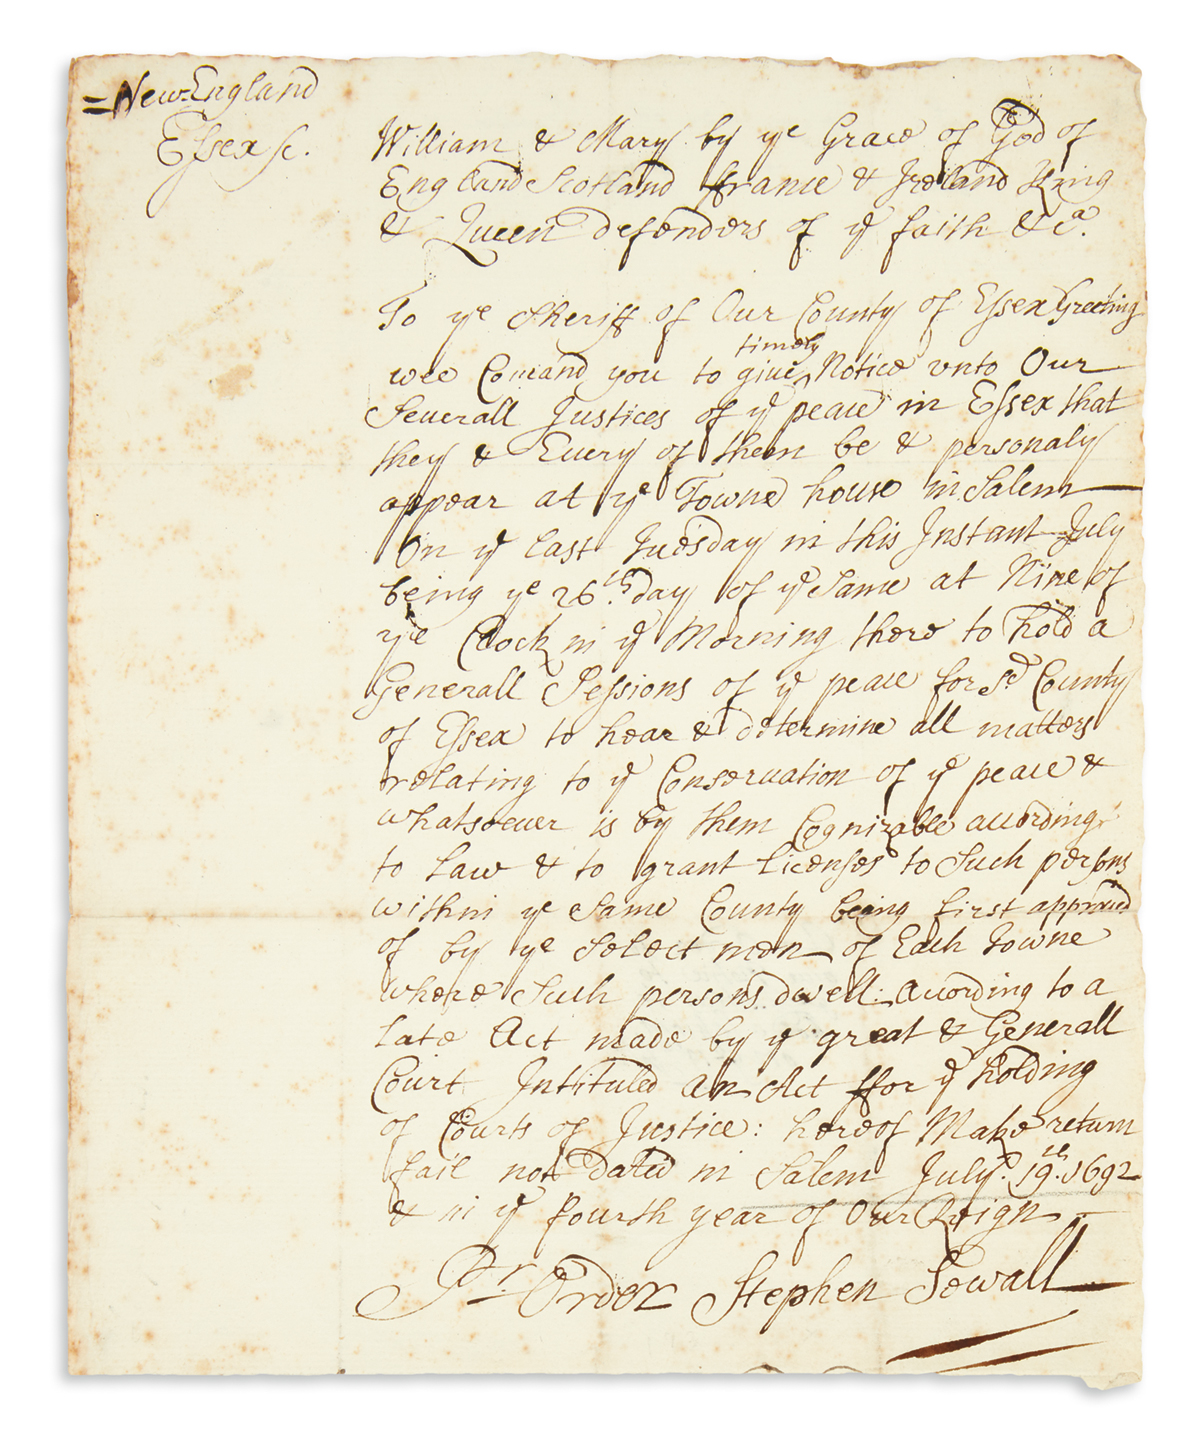 =New-England
Essex sc.
William & Mary by ye Grace of God of
England Scotland ffrance & Ireland King
& Queen defenders of ye faith &ca.
To ye Sheriff of Our County of Essex Greeting
timely
wee Comand you to give ^ Notice vnto Our
Seuerall Justices of ye peace in Essex that
they & Euery of them be & personaly
appear at ye Towne house in Salem
On ye last Tuesday in this Instant July
being ye 26th. day of ye Same at Nine of
ye Clock in ye Morning there to hold a
Generall Sessions of ye peace for sd County
of Essex to hear & determine all matters
relating to ye Conseruation of ye peace &
whatsoeuer is by them Cognizable according
to Law & to grant Licenses to Such persons
within ye Same County being first approued
of by ye Select men of Each Towne
where Such persons dwell: according to a
late Act made by ye great & Generall
Court Intituled an Act ffor ye holding
of Courts of Justice: hereof Make return
fail not dated in Salem July. 19th. 1692
& in ye fourth year of Our Reign
Pr. Order Stephen Sewall